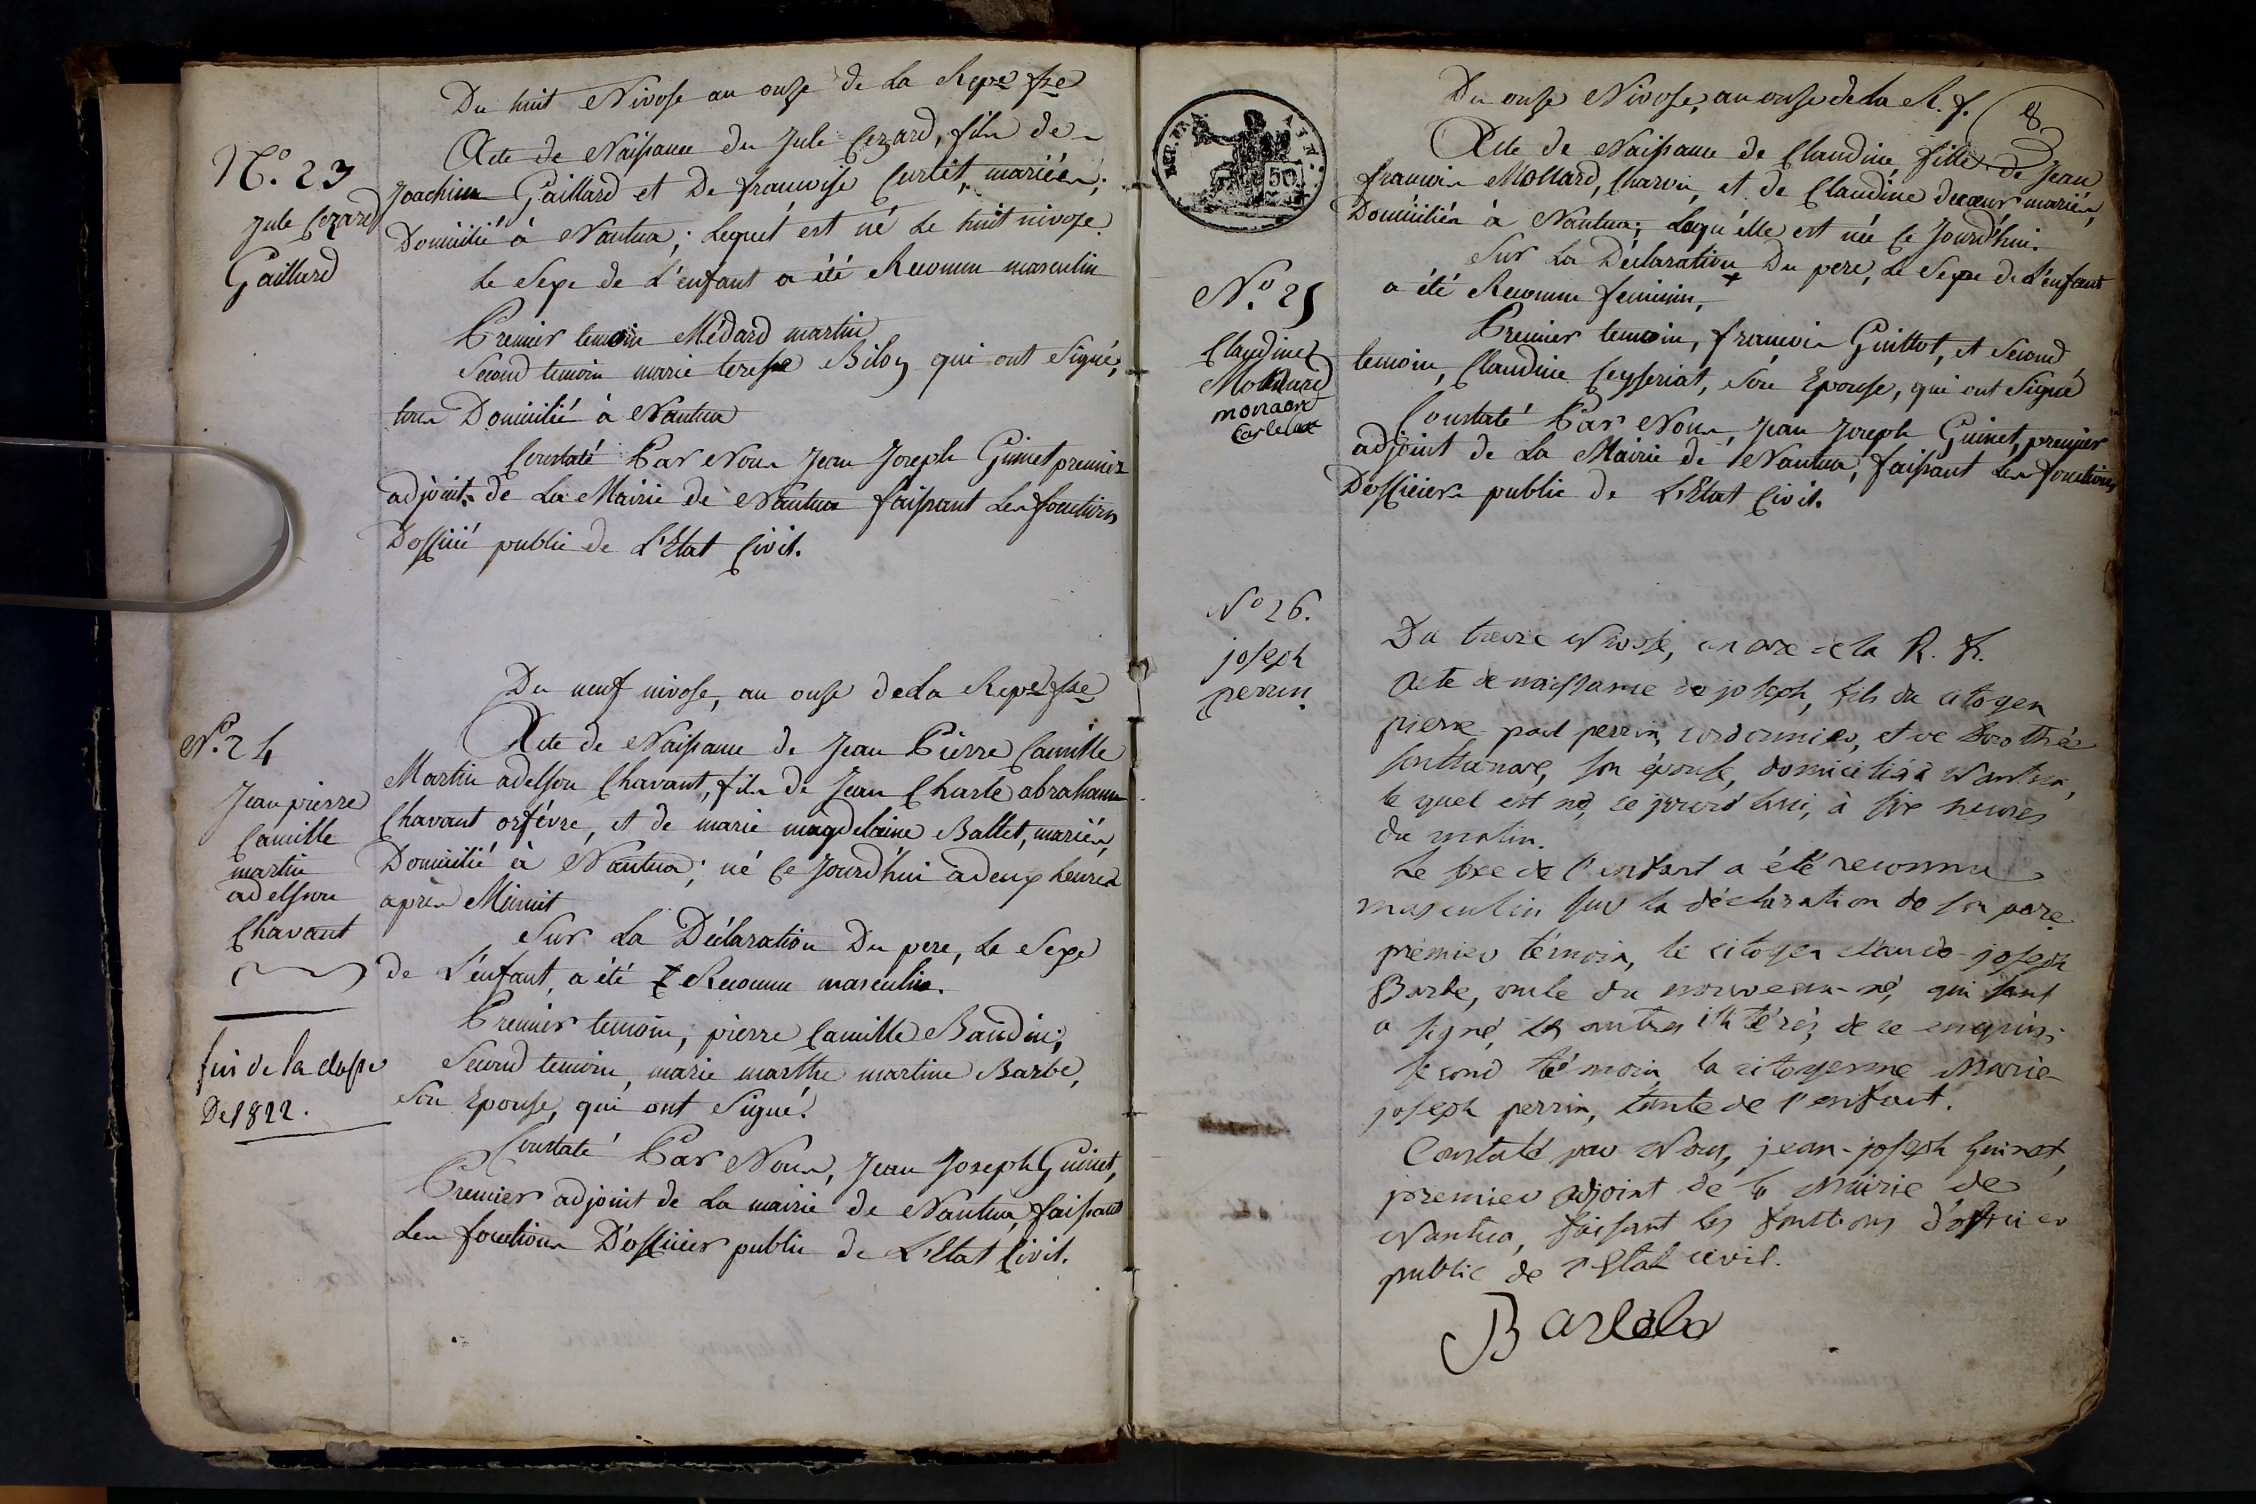 Du huit Nivose an onze de la Repe fse
N.° 23
Jule Cezard
Gaillard
Acte de Naissance du Jule Cezard, fils de
Joachim Gaillard et De francoise Curlit, mariés,
Domicilié à Nantua; Lequel est né Le huit nivose.
Le Sexe de L'enfant a été Reconnu masculin
Premier temoin Médard martin
Second temoin marie terese Biloz qui ont Signé,
tous Domicilié à Nantua
Constaté Par Nous Jean Joseph Guinet premier
adjoint de La Mairie de Nantua faisant Les fonctions
Dofficié public de L'Etat Civil.
Du neuf nivose, an onze de La Repe fse
N.° 24
Jean pierre
Camille
martin
adelson
Chavant
fin de la classe
De 1822.
Acte de Naissance de Jean Pierre Camille
Martin adelson Chavant, fils de Jean Charle abraham
Chavant orfévre, et de marie magdelaine Ballet, mariés,
Domicilié à Nantua; né Ce Jourd'hui a deux heures
après Minuit
Sur La Déclaration Du pere, Le Sexe
de L'enfant, a été Reconnu masculin.
Premier temoin, pierre Camille Baudin;
Second temoin, marie marthe martine Barbe,
Son Epouse, qui ont Signé.
Constaté Par Nous, Jean Joseph Guinet,
Premier adjoint de La mairie de Nantua, faisant
Les fonctions D'officier public de L'Etat Civil.
REP. FRA
50
8
Du onze Nivose, an onze de La R. f.
N.° 25
Claudine
Mollard
Acte de Naissance de Claudine, fille de Jean
francois Mollard, Charon, et de Claudine ducœur mariés,
Domiciliés à Nantua; Laqu'elle est née Ce Jourd'hui.
Sur La Déclaration Du pere, Le Sexe de L'enfant
a été Reconnu feminin,
Premier temoin, francois Guillot, et Second
temoin, Claudine Ceyseriat, Son Epouse, qui ont Signé
Constaté Par Nous, Jean Joseph Guinet, premier
adjoint de La Mairie de Nantua, faisant Les fonctions
D'officier public de L'Etat Civil.
N° 26.
joseph
perrin.
Du treize Nivose, an onze de la R. f.
Acte de naissance de joseph, fils du citoyen
pierre paul perrin, cordonnier, et de Dorothée
son épouse, domiciliés à Nantua,
le quel est né, ce jourd'hui, à six heures
du matin.
Le sexe de l'enfant a été reconnu
masculin sur la déclaration de son pere
premier témoin, le citoyen Claude-joseph
Barbe, oncle du nouveau-né, qui seul
a signé, les autres illitérés, de ce enquis.
second témoin, la citoyenne Marie-
joseph perrin, tante de l'enfant.
Constaté par Nous, jean-joseph Guinet,
premier adjoint de la Mairie de
Nantua, faisant les fonctions d'officier
public de l'Etat civil.